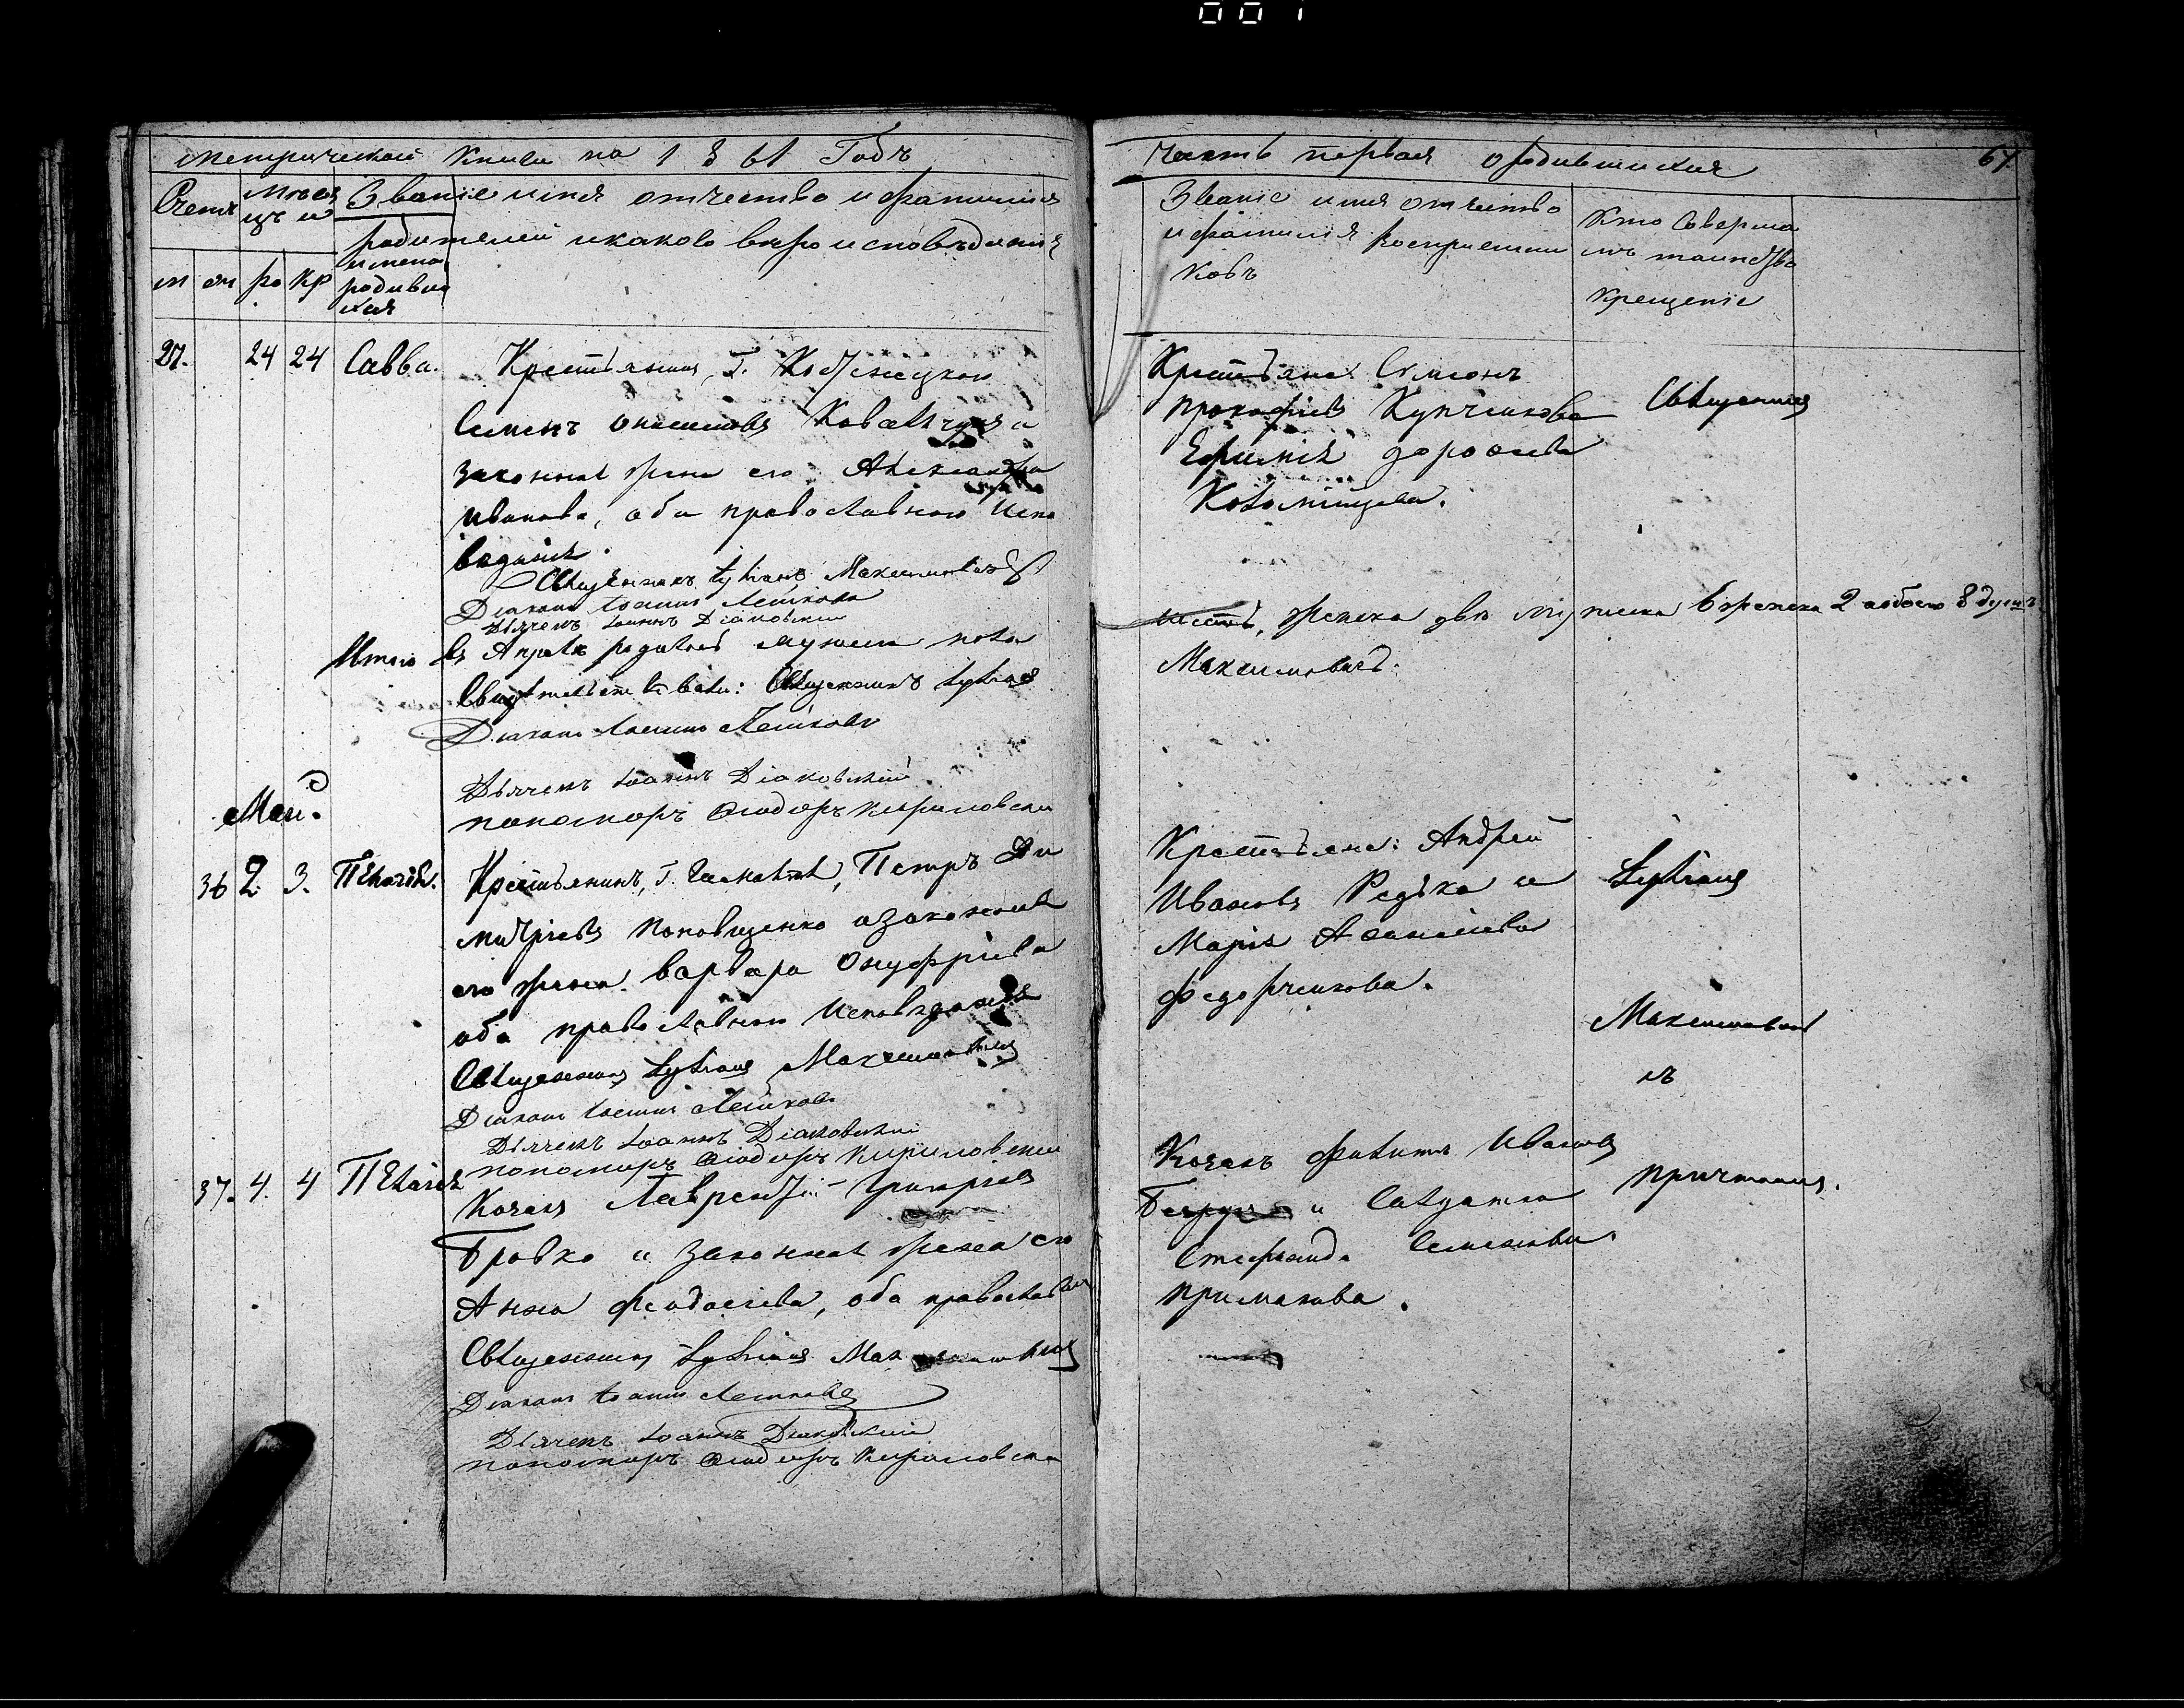 001
Метрической Книги на 1861 Годъ
Счетъ
Месяцъ и
Званіе имя отчество и фамилия
родителей и какого вероисповѣданія
м
ж
ро
кр
имена
родивши
хся
27. 24 24 Савва. Крестьянинъ, Г.
Семенъ Ковальчукъ и
законная жена его Александра
Иванова, оба православного Испо
веданія.
Священникъ Максимовичъ
Діаконъ Іоаннъ Лешковъ
Дьячекъ Іоаннъ Діаковскій
Итого въ Апреле родилось мужеска пола
Священникъ
Діаконъ Іоаннъ Лешковъ
Дьячекъ Іоаннъ Діаковскій
пономарь Феодоръ Кириловскій
Май.
36 2. 3. Пелагія. Крестьянинъ, Г. Петръ Ди
митріевъ Поповиченко и законная
его жена Варвара Онуфріева
оба православного Исповѣданія
Священникъ Максимовичъ
Діаконъ Іоаннъ Лешковъ
Дьячекъ Іоаннъ Діаковскій
пономарь Феодоръ Кириловскій
37. 4. 4 Пелагія
Козакъ Лаврентій Григоріевъ
Бровко и законная жена его
Анна Феодосіева, оба православн
Священникъ Максимовичъ
Діаконъ Іоаннъ Лешковъ
Дьячекъ Іоаннъ Діаковскій
пономарь Феодоръ Кириловскій
Часть первая о родившихся
67.
Званіе имя отчество
и фамилія воспріемни
ковъ
Кто совершa
лъ таинство
крещенія
Крестьяне: Симеонъ
Прокофіевъ
Ефимія
Коломійцева.
Священникъ
шесть, женска двѣ мужеска 6 женска 2 а обоего 8 душъ
Максимовичъ.
Крестьяне: Андрей
Ивановъ Редька и
Марія
Федорченкова.
Максимович
ъ
Козакъ Филипъ Ивановъ
и Солдатка
Стефанида Семенова
Примакова.
причтомъ.